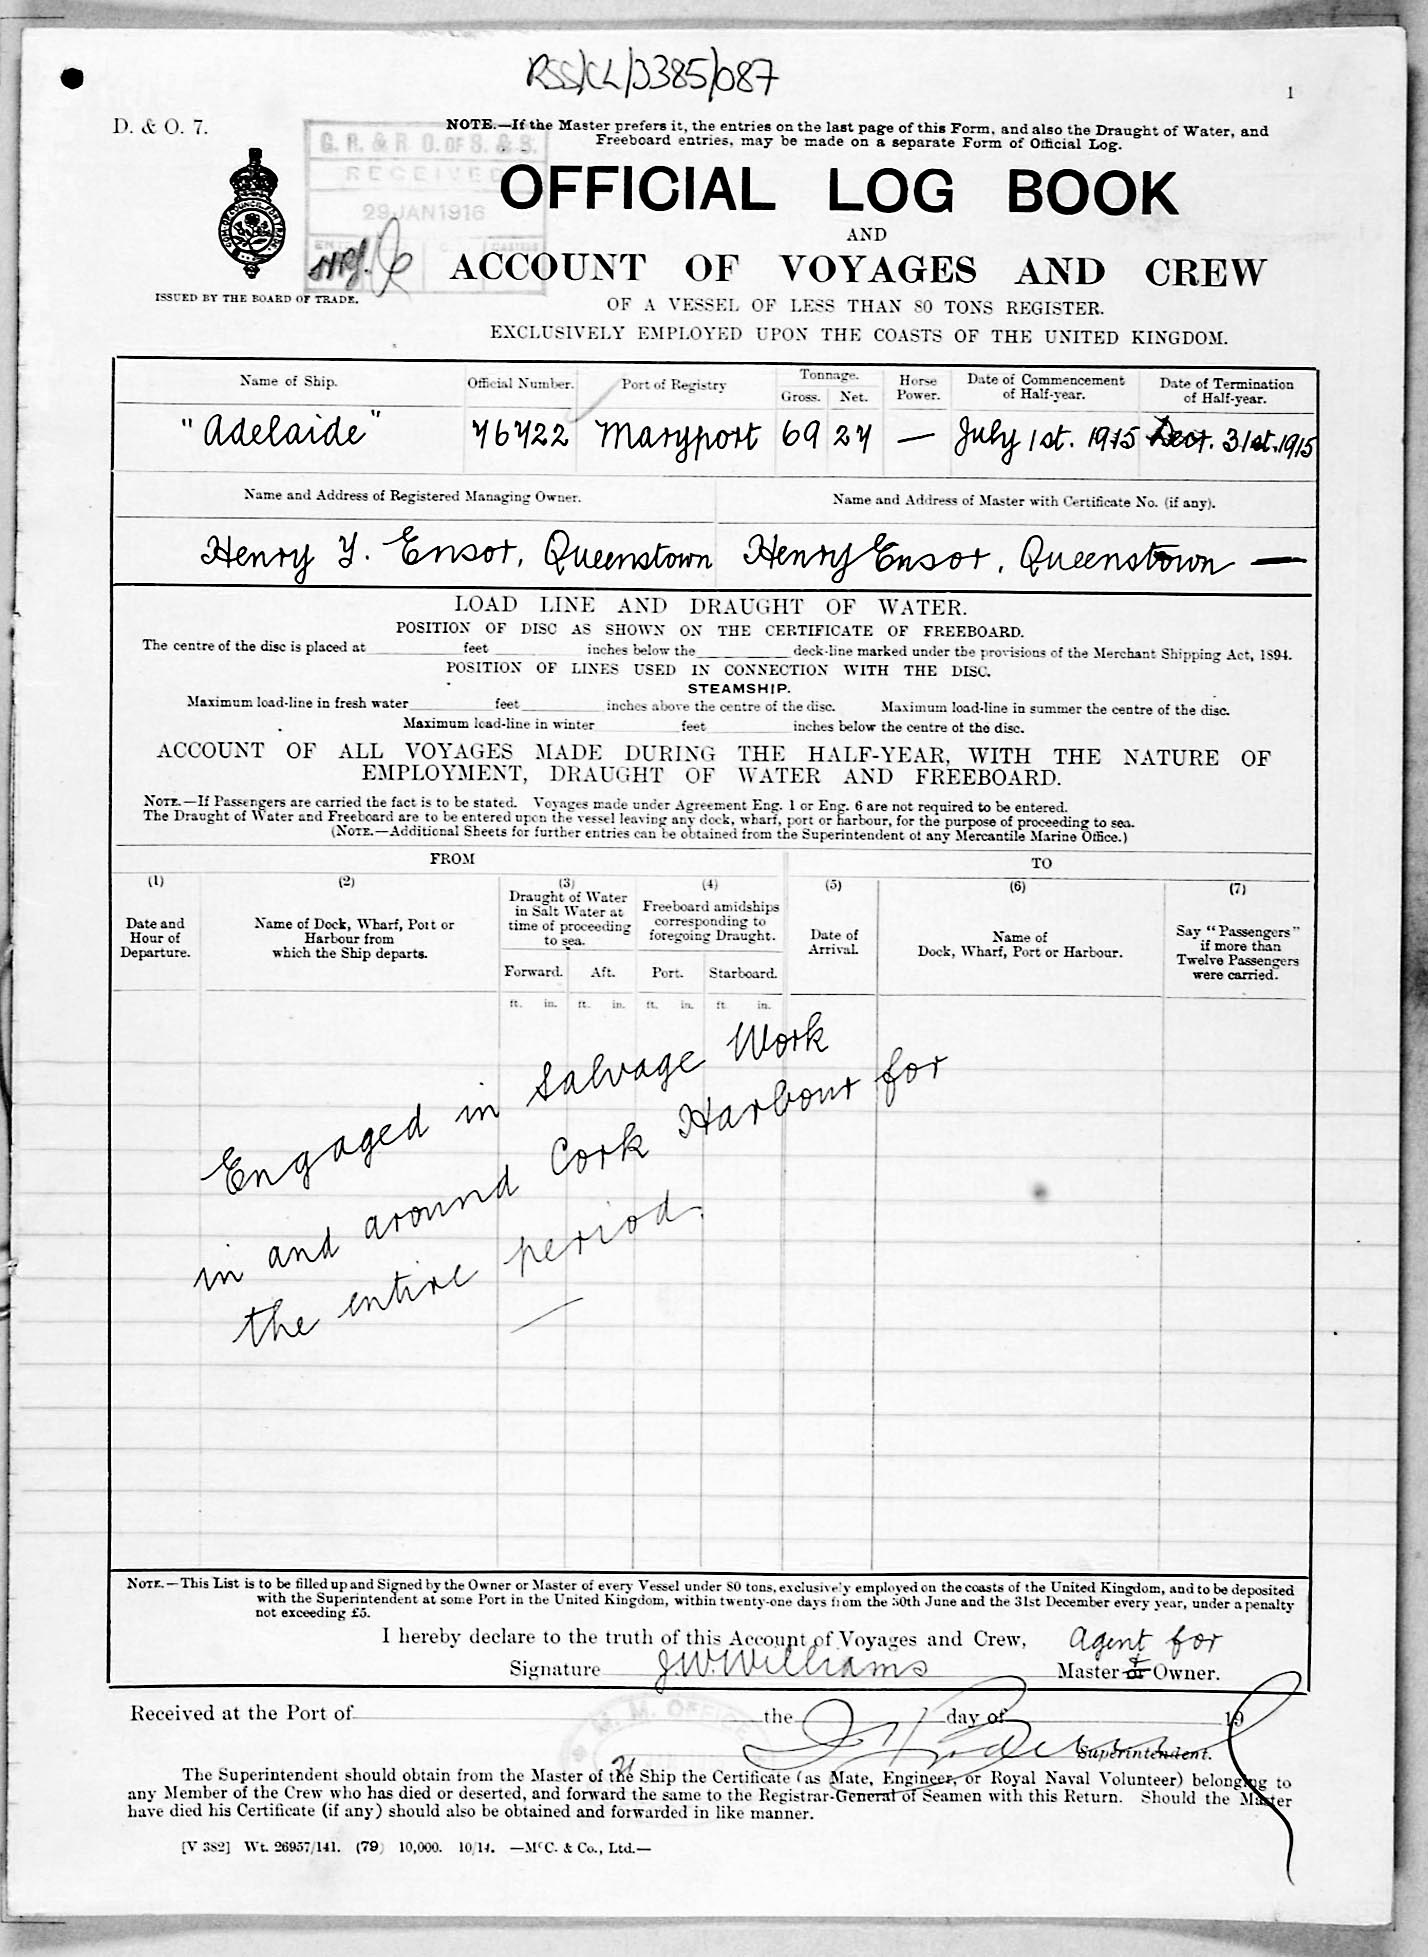 RSS/CL/3385/087
1
D. & O. 7.
NOTE.—If the Master prefers it, the entries on the last page of this Form, and also the Draught of Water, and
Freeboard entries, may be made on a separate Form of Official Log.
G. R. & R. O. OF S. & S.
RECEIVED
29 JAN 1916
OFFICIAL LOG BOOK
AND
ACCOUNT OF VOYAGES AND CREW
ISSUED BY THE BOARD OF TRADE.
OF A VESSEL OF LESS THAN 80 TONS REGISTER.
EXCLUSIVELY EMPLOYED UPON THE COASTS OF THE UNITED KINGDOM.
Name of Ship. Official Number. Port of Registry Tonnage. Gross. Net. Horse Power. Date of Commencement of Half-year. Date of Termination of Half-year.
"Adelaide" 76722 Maryport 69 27 — July 1st. 1915 Dect. 31st. 1915
Name and Address of Registered Managing Owner. Name and Address of Master with Certificate No. (if any).
Henry Y. Ensor, Queenstown Henry Ensor, Queenstown —
LOAD LINE AND DRAUGHT OF WATER.
POSITION OF DISC AS SHOWN ON THE CERTIFICATE OF FREEBOARD.
The centre of the disc is placed at feet inches below the deck-line marked under the provisions of the Merchant Shipping Act, 1894.
POSITION OF LINES USED IN CONNECTION WITH THE DISC.
STEAMSHIP.
Maximum load-line in fresh water feet inches above the centre of the disc. Maximum load-line in summer the centre of the disc.
Maximum load-line in winter feet inches below the centre of the disc.
ACCOUNT OF ALL VOYAGES MADE DURING THE HALF-YEAR, WITH THE NATURE OF
EMPLOYMENT, DRAUGHT OF WATER AND FREEBOARD.
NOTE.—If Passengers are carried the fact is to be stated. Voyages made under Agreement Eng. 1 or Eng. 6 are not required to be entered.
The Draught of Water and Freeboard are to be entered upon the vessel leaving any dock, wharf, port or harbour, for the purpose of proceeding to sea.
(NOTE.—Additional Sheets for further entries can be obtained from the Superintendent of any Mercantile Marine Office.)
FROM TO
(1) (2) (3) (4) (5) (6) (7)
Date and Hour of Departure.
Name of Dock, Wharf, Port or Harbour from which the Ship departs.
Draught of Water in Salt Water at time of proceeding to sea.
Freeboard amidships corresponding to foregoing Draught.
Date of Arrival.
Name of Dock, Wharf, Port or Harbour.
Say "Passengers" if more than Twelve Passengers were carried.
Forward. Aft. Port. Starboard.
ft. in. ft. in. ft. in. ft. in.
Engaged in Salvage Work
in and around Cork Harbour for
the entire period.
NOTE.—This List is to be filled up and Signed by the Owner or Master of every Vessel under 80 tons, exclusively employed on the coasts of the United Kingdom, and to be deposited
with the Superintendent at some Port in the United Kingdom, within twenty-one days from the 30th June and the 31st December every year, under a penalty
not exceeding £5.
I hereby declare to the truth of this Account of Voyages and Crew, Agent for
Signature J.W. Williams Master & or Owner.
Received at the Port of the day of 19
M. M. OFFICE
Superintendent.
The Superintendent should obtain from the Master of the Ship the Certificate (as Mate, Engineer, or Royal Naval Volunteer) belonging to
any Member of the Crew who has died or deserted, and forward the same to the Registrar-General of Seamen with this Return. Should the Master
have died his Certificate (if any) should also be obtained and forwarded in like manner.
[V 382] Wt. 26957/141. (79) 10,000. 10/14. —McC. & Co., Ltd.—